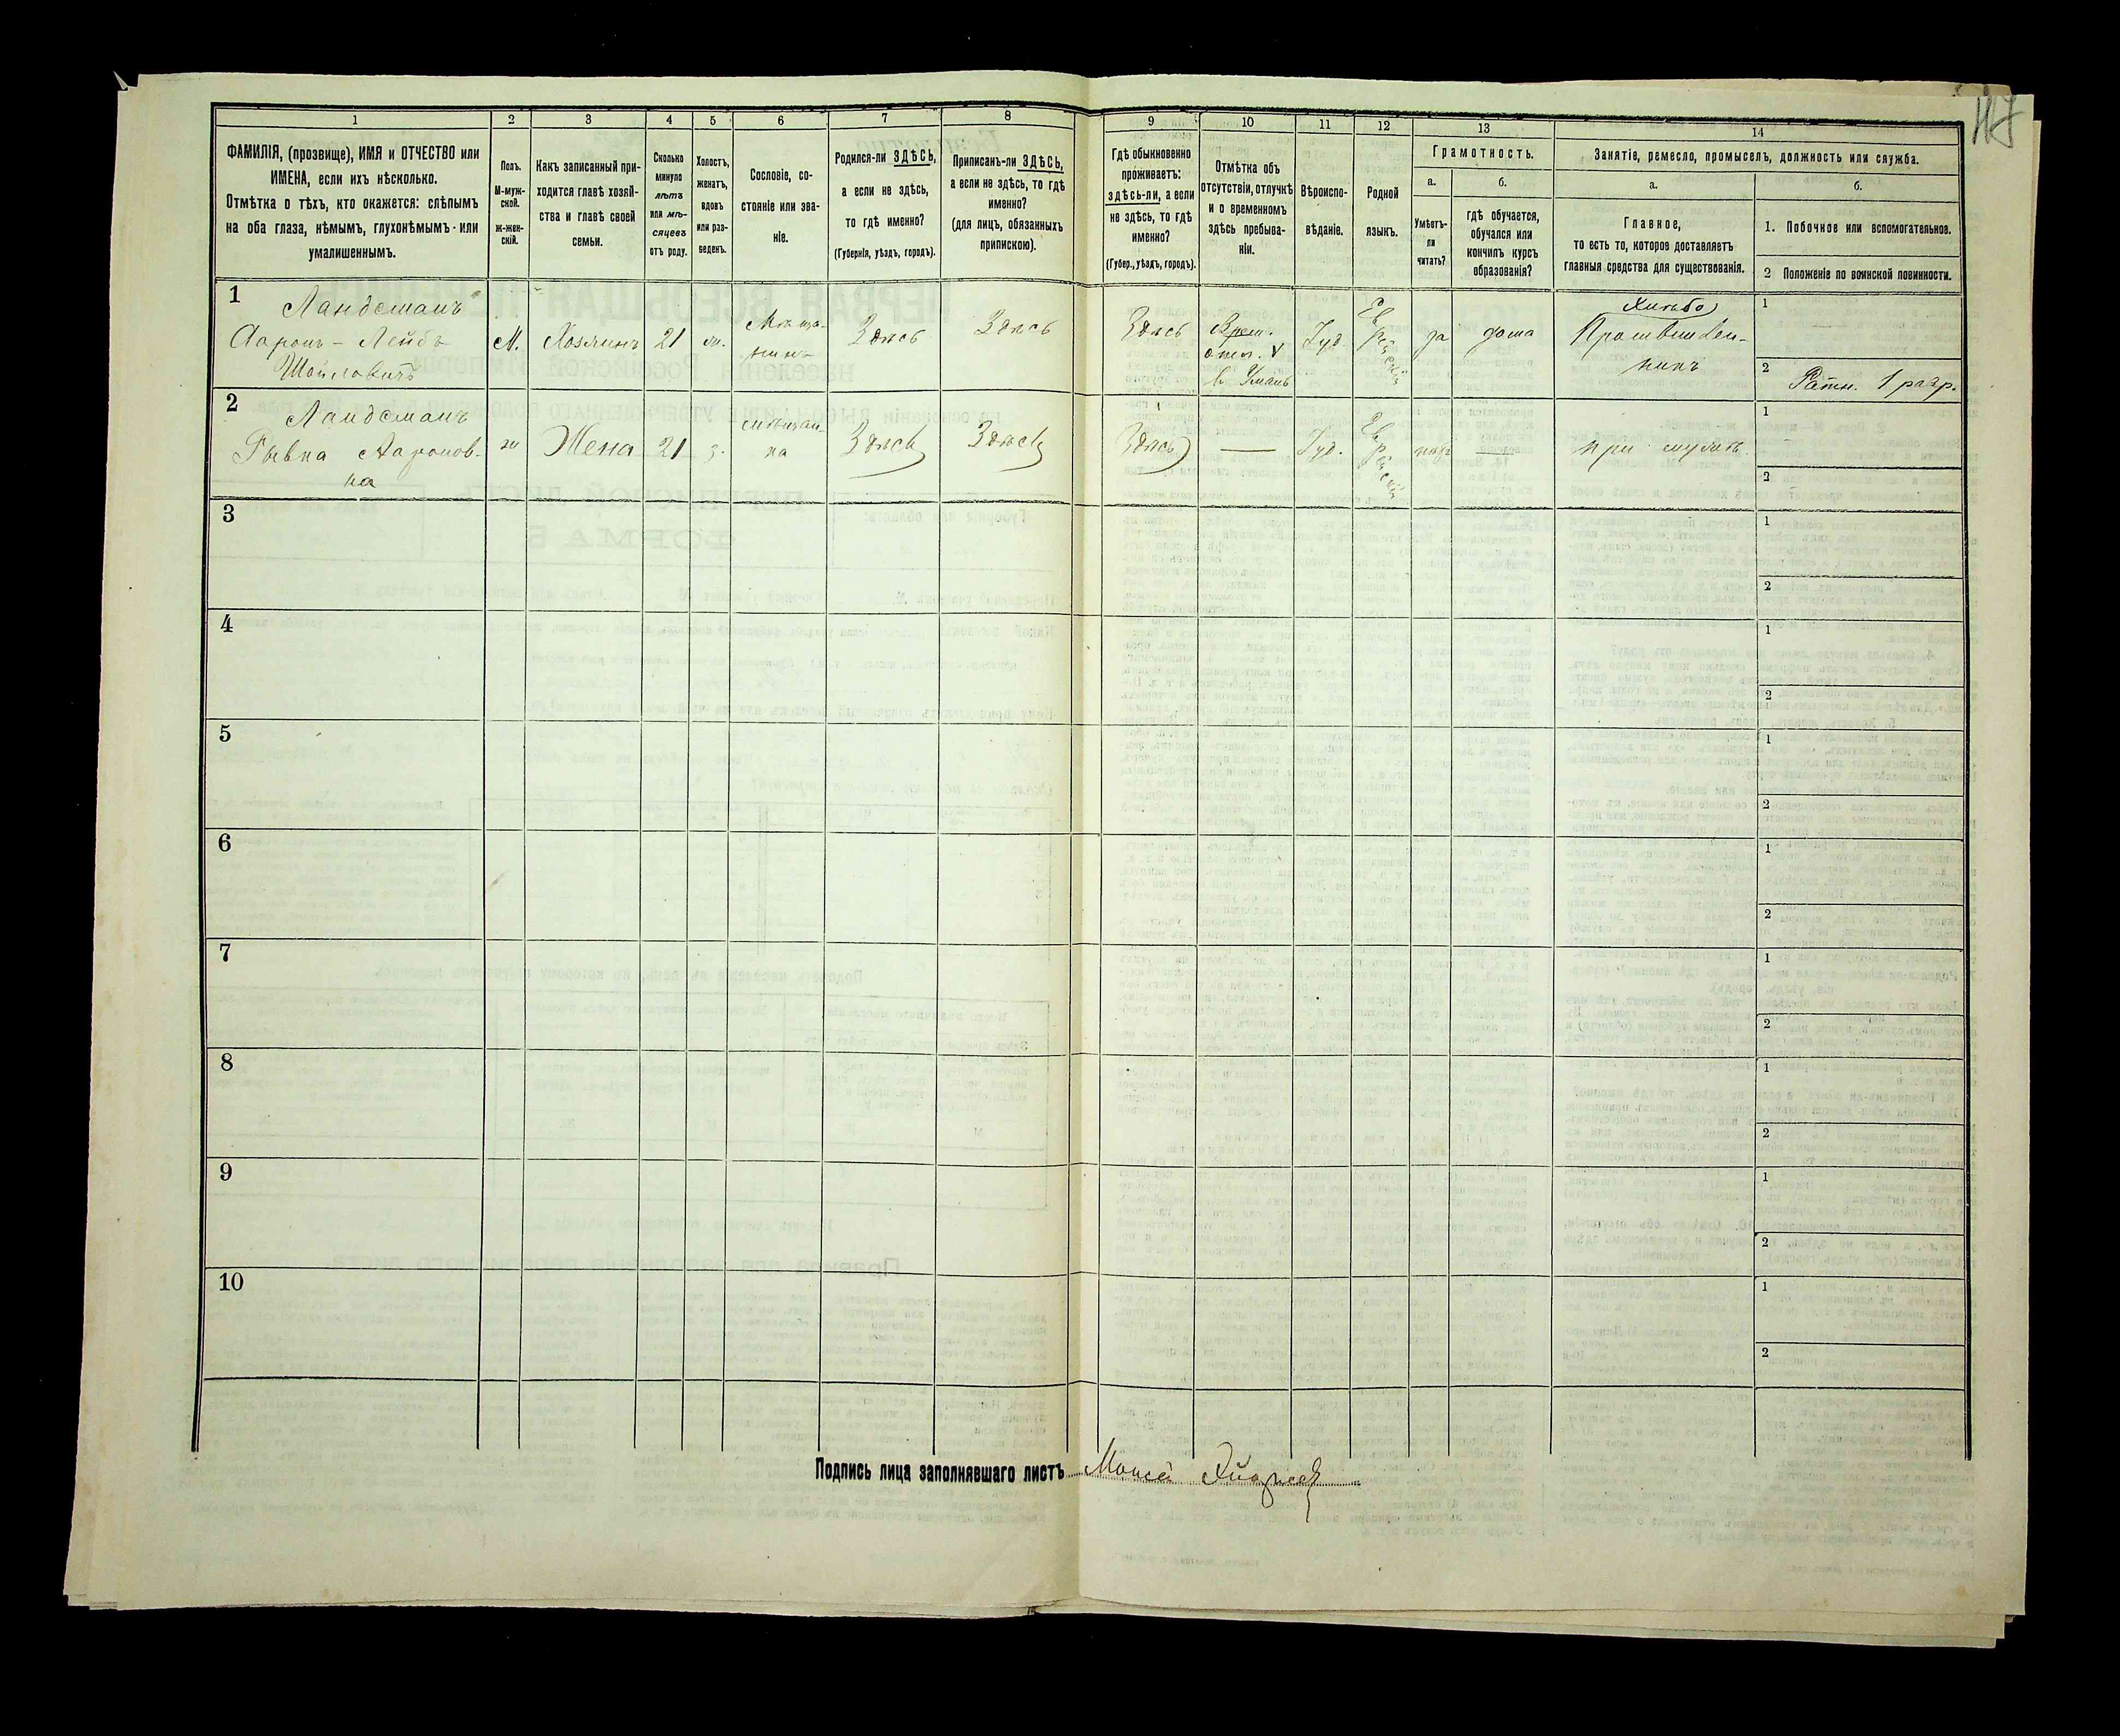 117
1 2 3 4 5 6 7 8 9 10 11 12 13 14
ФАМИЛІЯ, (прозвище), ИМЯ и ОТЧЕСТВО или
ИМЕНА, если ихъ нѣсколько.
Отмѣтка о тѣхъ, кто окажется: слѣпымъ
на оба глаза, нѣмымъ, глухонѣмымъ или
умалишеннымъ.
Полъ.
М-муж-
ской.
ж-жен-
скій.
Какъ записанный при-
ходится главѣ хозяй-
ства и главѣ своей
семьи.
Сколько
минуло
лѣтъ
или мѣ-
сяцевъ
отъ роду.
Холостъ,
женатъ,
вдовъ
или раз-
веденъ.
Сословіе, со-
стояніе или зва-
ніе.
Родился-ли ЗДѢСЬ,
а если не здѣсь,
то гдѣ именно?
(Губернія, уѣздъ, городъ).
Приписанъ-ли ЗДѢСЬ,
а если не здѣсь, то гдѣ
именно?
(для лицъ, обязанныхъ
припискою).
Гдѣ обыкновенно
проживаетъ:
здѣсь-ли, а если
не здѣсь, то гдѣ
именно?
(Губер., уѣздъ, городъ).
Отмѣтка объ
отсутствіи, отлучкѣ
и о временномъ
здѣсь пребыва-
ніи.
Вѣроиспо-
вѣданіе.
Родной
языкъ.
Грамотность.
а.
Умѣетъ-
ли
читать?
б.
гдѣ обучается,
обучался или
кончилъ курсъ
образованія?
Занятіе, ремесло, промыселъ, должность или служба.
а.
Главное,
то есть то, которое доставляетъ
главныя средства для существованія.
б.
1. Побочное или вспомогательное.
2 Положеніе по воинской повинности.
1
Ландсманъ
Ааронъ-Лейбъ
Шойловичъ
М.
Хозяинъ
21
ж.
Мѣща-
нинъ
Здѣсь
Здѣсь
Здѣсь
Врем.
отл. V
в. Умань
Іуд.
Ев
рей
скій
да
дома
Хлѣбо
Промышлен-
никъ
1
2 Ратн. 1 разр.
2
Ландсманъ
Рывка Ааронов-
на
ж
Жена
21
з.
мѣщан-
ка
Здѣсь
Здѣсь
Здѣсь
—
Іуд.
Ев
рей
скій
нѣт
—
при мужѣ.
1
2
3
1
2
4
1
2
5
1
2
6
1
2
7
1
2
8
1
2
9
1
2
10
1
2
Подпись лица заполнявшаго листъ Моисей